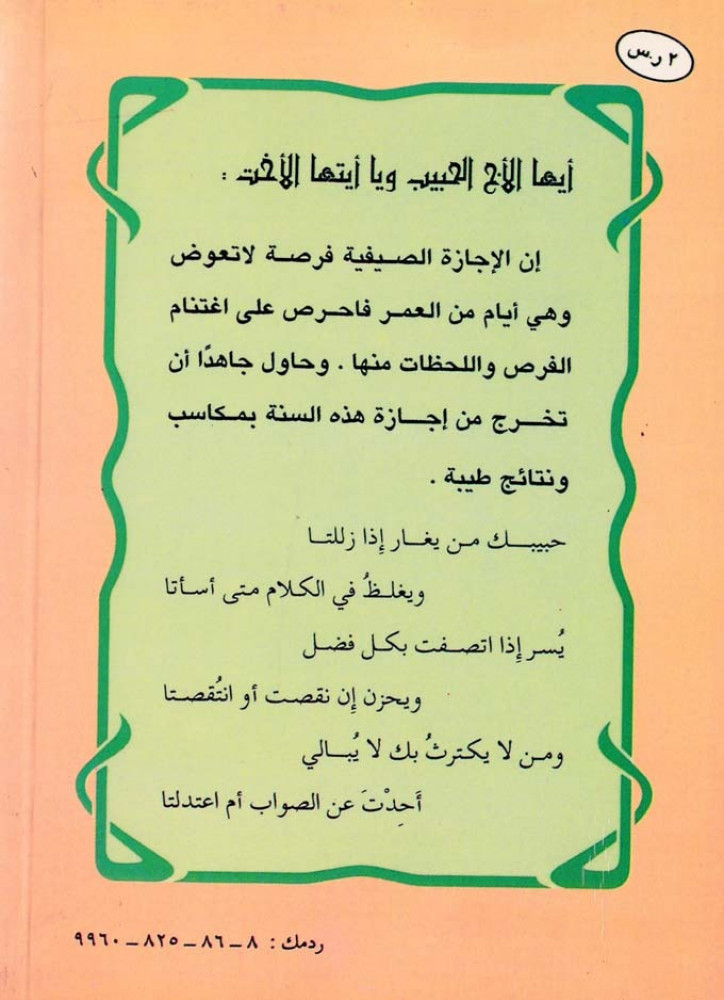 ٢ ر.س
أيها الأخ الحبيب ويا أيتها الأخت :
إن الإجازة الصيفية فرصة لاتعوض
وهي أيام من العمر فاحرص على اغتنام
الفرص واللحظات منها . وحاول جاهدًا أن
تخرج من إجازة هذه السنة بمكاسب
ونتائج طيبة .
حبيبك من يغار إذا زللتا
ويغلظُ في الكلام متى أسأتا
يُسر إذا اتصفت بكل فضل
ويحزن إن نقصت أو انتُقصتا
ومن لا يكترثُ بك لا يُبالي
أَحِدْتَ عن الصواب أم اعتدلتا
ردمك : ٨ – ٨٦ – ٨٢٥ – ٩٩٦٠